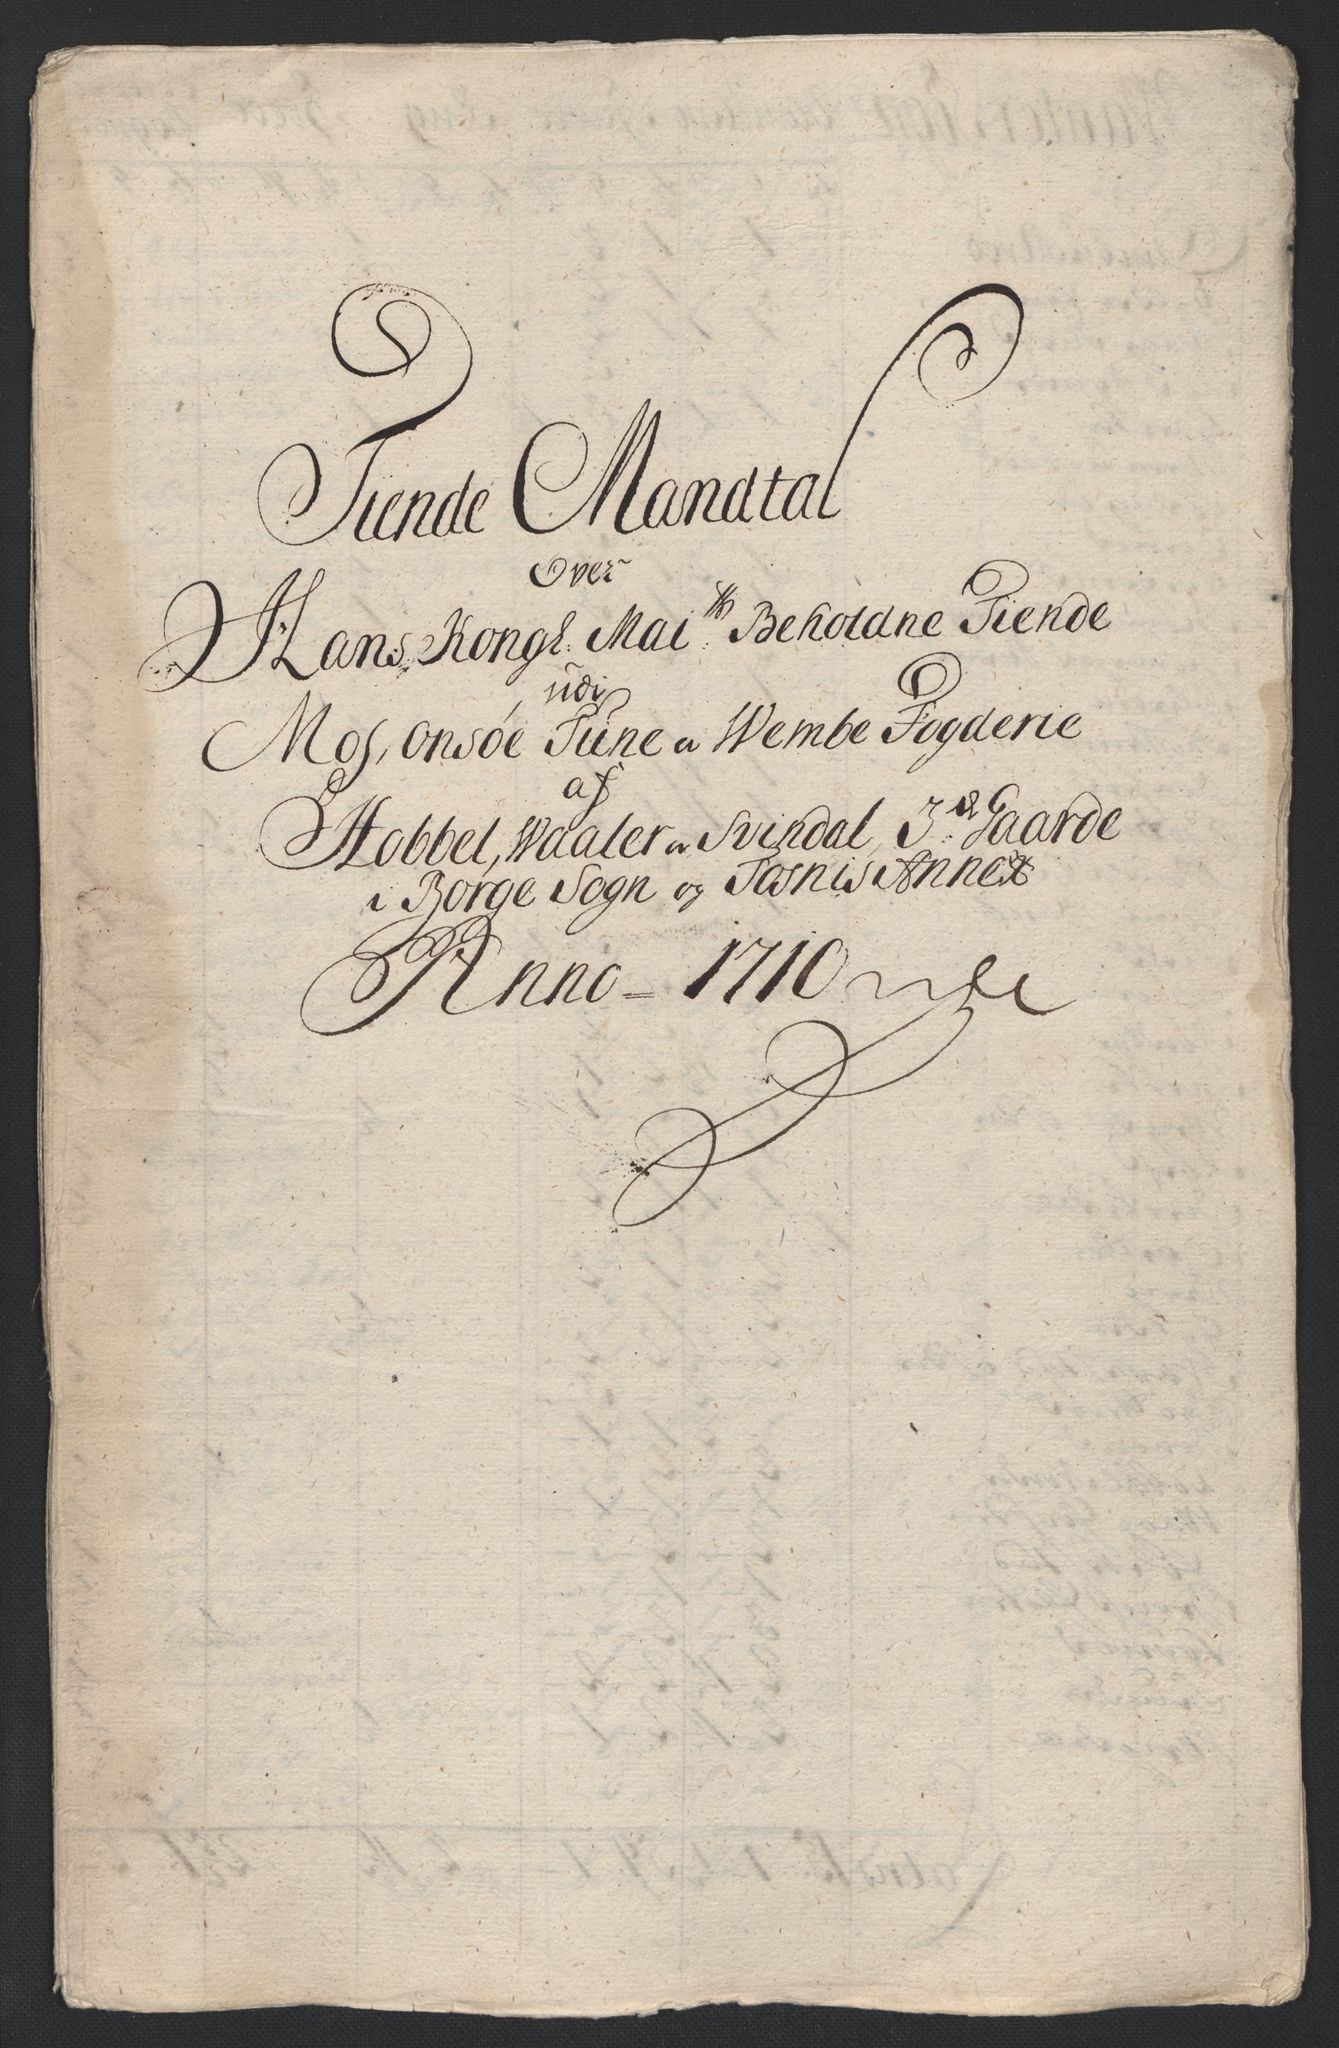 Tiende Mandtal
Over
Hans Kongl: Mai:ts Beholdne Tiende
udi
Mos, Onsøe Tune og Wembe Fogderie
af
Hobbel, Waaler og Svindal, 3de Gaarde
i Borge Sogn og Annex
Anno = 1710